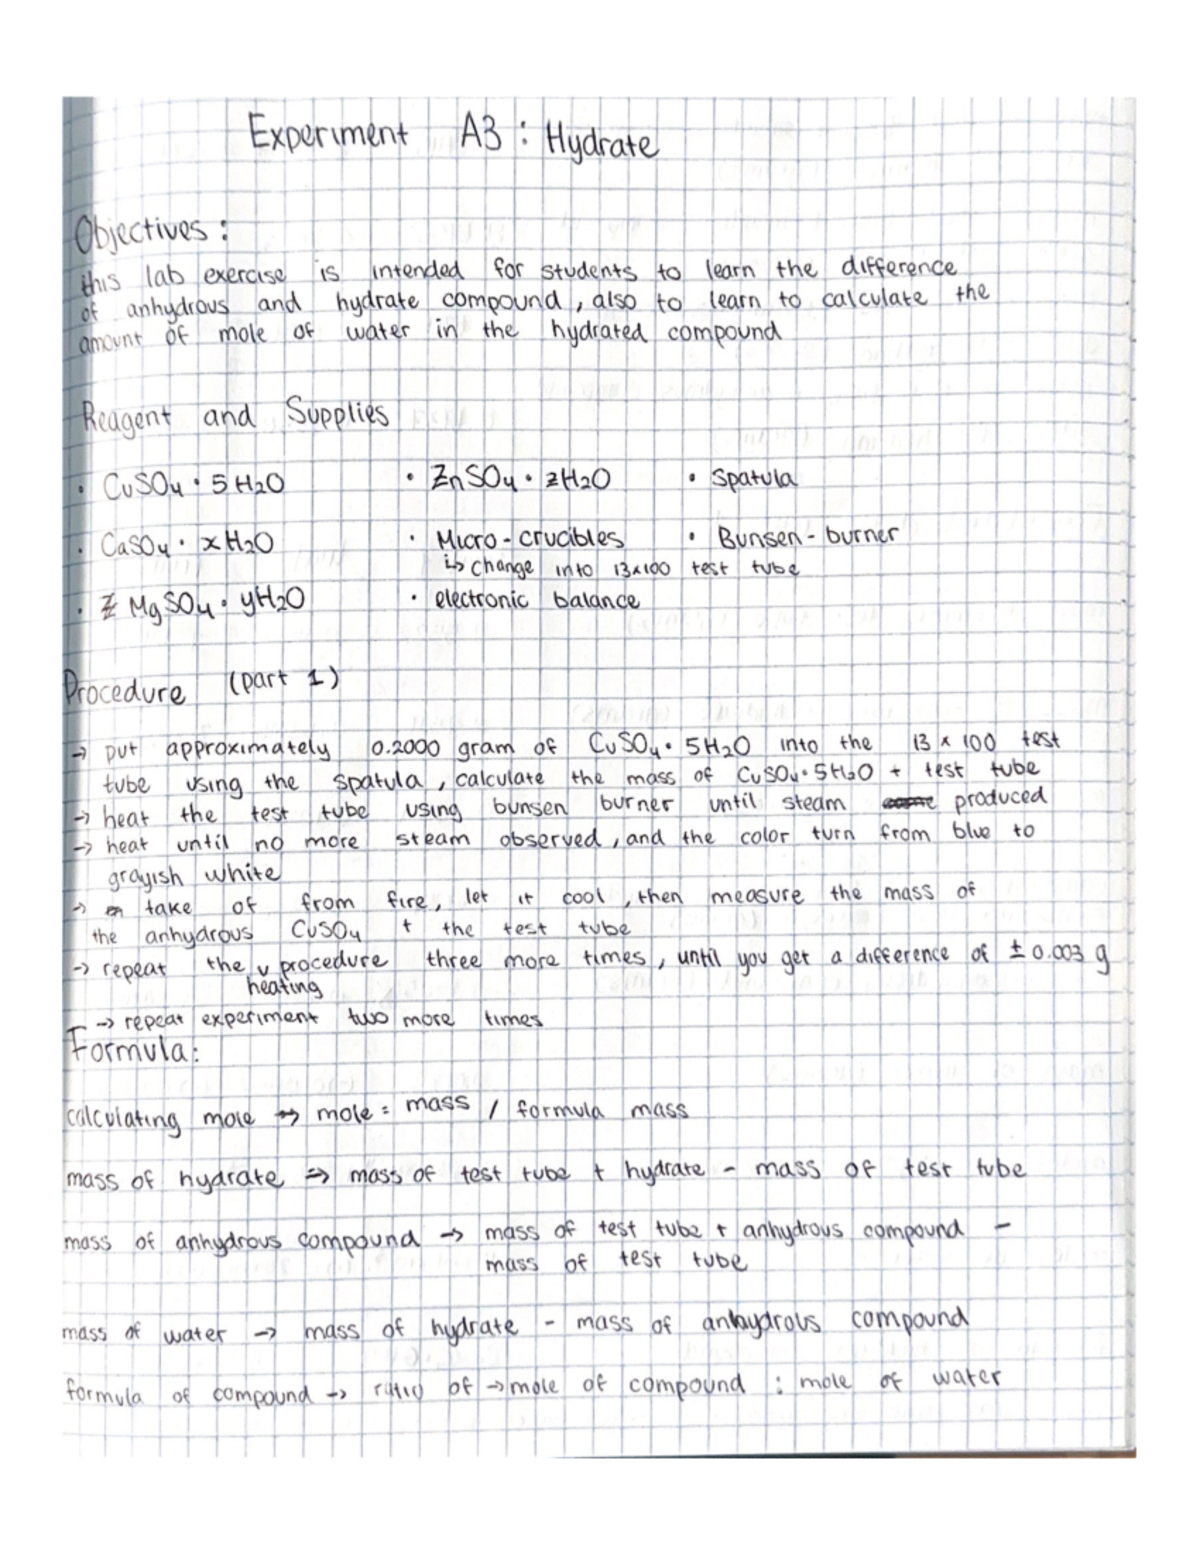 Experiment A3 : Hydrate
Objectives :
this lab exercise is intended for students to learn the difference
of anhydrous and hydrate compound , also to learn to calculate the
amount of mole of water in the hydrated compound
Reagent and Supplies
• CuSO4 • 5 H2O • ZnSO4 • zH2O • Spatula
• CaSO4 • x H2O • Micro - crucibles • Bunsen - burner
↳ change into 13x100 test tube
• MgSO4 • yH2O • electronic balance
Procedure (part 1)
→ put approximately 0.2000 gram of CuSO4 • 5H2O into the 13 x 100 test
tube using the spatula , calculate the mass of CuSO4 • 5H2O + test tube
→ heat the test tube using bunsen burner until steam produced
→ heat until no more steam observed , and the color turn from blue to
grayish white
→ take of from fire, let it cool , then measure the mass of
the anhydrous CuSO4 + the test tube
→ repeat the v procedure three more times , until you get a difference of ± 0.003 g
heating
→ repeat experiment two more times
Formula :
calculating mole → mole = mass / formula mass
mass of hydrate ⇒ mass of test tube + hydrate - mass of test tube
mass of anhydrous compound → mass of test tube + anhydrous compound -
mass of test tube
mass of water → mass of hydrate - mass of anhydrous compound
formula of compound → ratio of → mole of compound : mole of water